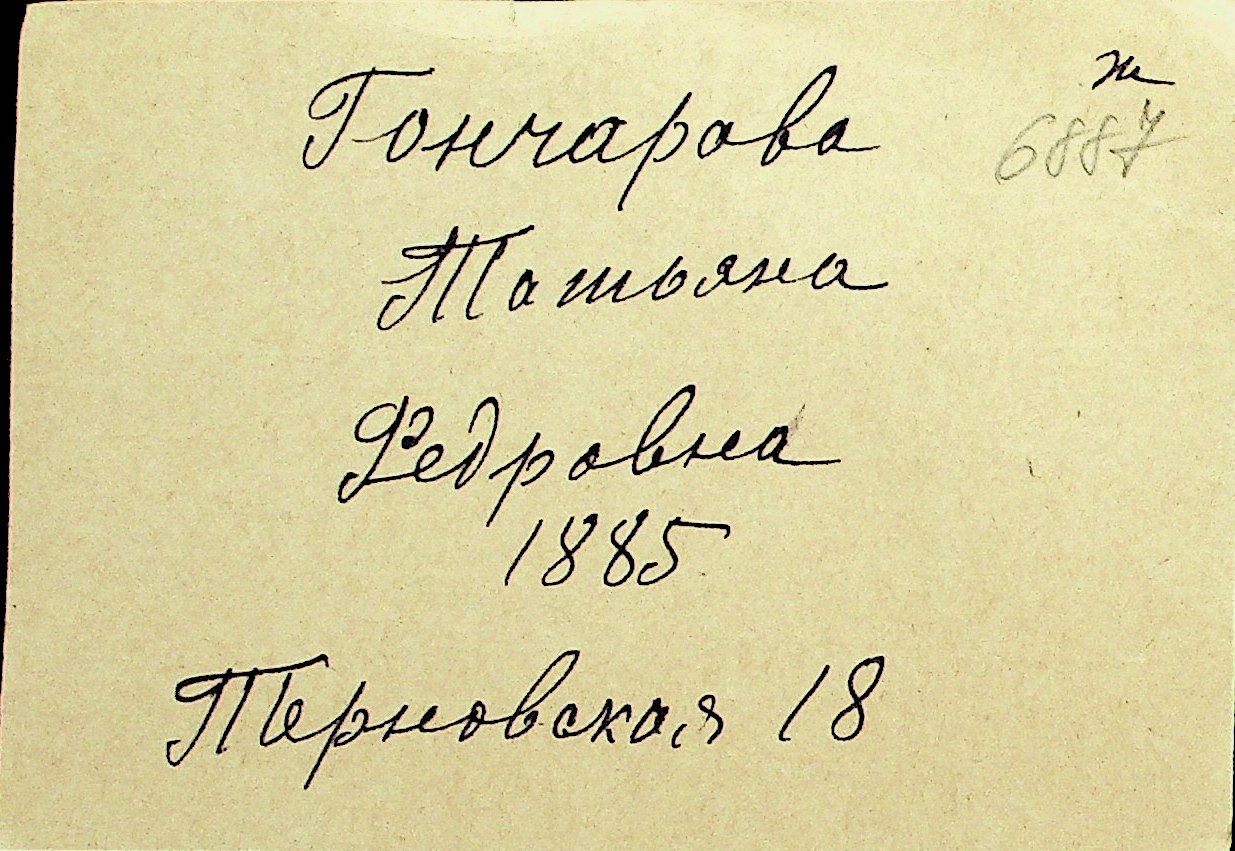 ж
6887
Гончарова
Татьяна
Федровна
1885
Терновская 18